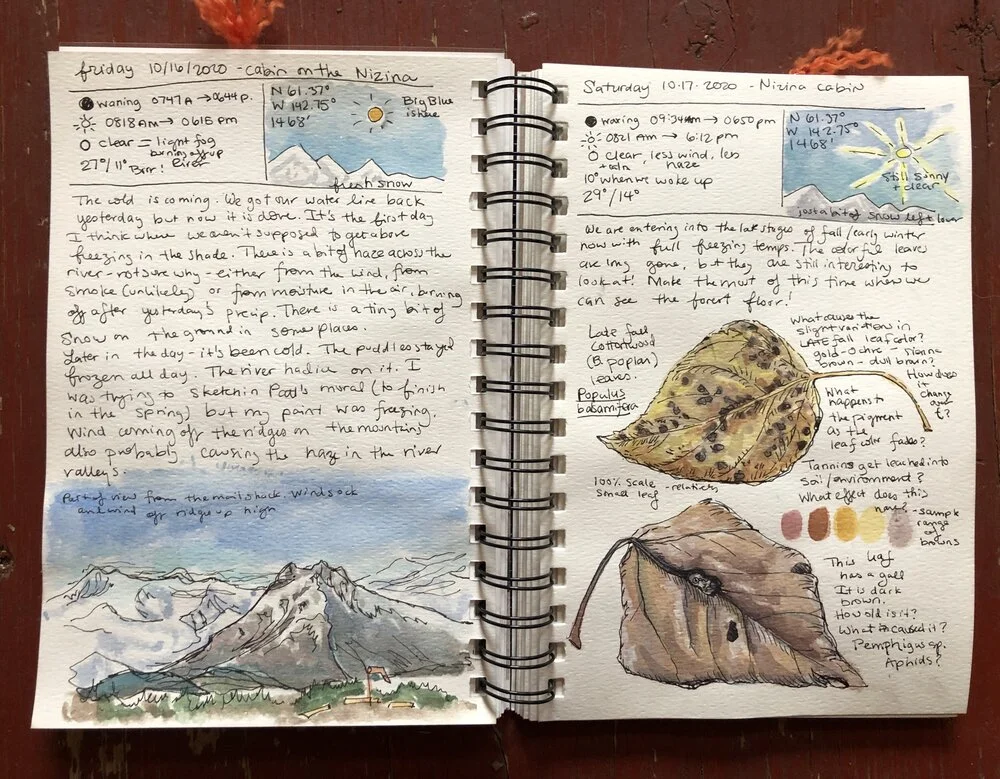 friday 10/16/2020 - cabin on the Nizina
waning 0747A → 0644 p.
0818 AM → 0615 pm
clear = light fog
burning off up
River
27°/11° Brrr!
N 61.37°
W 142.75°
1468'
Big Blue
is hue
fresh snow
The cold is coming. We got our water line back
yesterday but now it is done. It's the first day
I think where we aren't supposed to get above
freezing in the shade. There is a bit of haze across the
river - not sure why - either from the wind, from
smoke (unlikely) or from moisture in the air, burning
off after yesterday's precip. There is a tiny bit of
snow on the ground in some places.
Later in the day - it's been cold. The puddles stayed
frozen all day. The river had ice on it. I
was trying to sketch in mural (to finish
in the spring) but my paint was freezing.
Wind coming off the ridges on the mountains
also probably causing the haze in the river
valleys.
Part of view from the mail shack. Windsock
and wind off ridge up high
Saturday 10.17.2020 - Nizina cabin
waxing 09:34am → 0650 pm
0821 AM → 6:12 pm
clear, less wind, less
haze
10° when we woke up
29°/14°
N 61.37°
W 142.75°
1468'
Still sunny
+ clear
just a bit of snow left over
We are entering into the late stages of fall/early winter
now with full freezing temps. The colorful leaves
are long gone, but they are still interesting to
look at! Make the most of this time when we
can see the forest floor!
Late fall
Cottonwood
(B. poplar)
leaves.
Populus
balsamifera
What causes the
slight variations in
LATE fall leaf color?
gold - ochre - sienna
brown - dull brown?
How does
it
change
What
happens to
the pigment
as the
leaf color fades?
100% scale - relatively
small leaf
Tannins get leached into
soil/environment?
What effect does this
have?
- sample
range
of
browns
This leaf
has a gall
It is dark
brown.
How old is it?
What caused it?
Pemphigus sp.
Aphids?